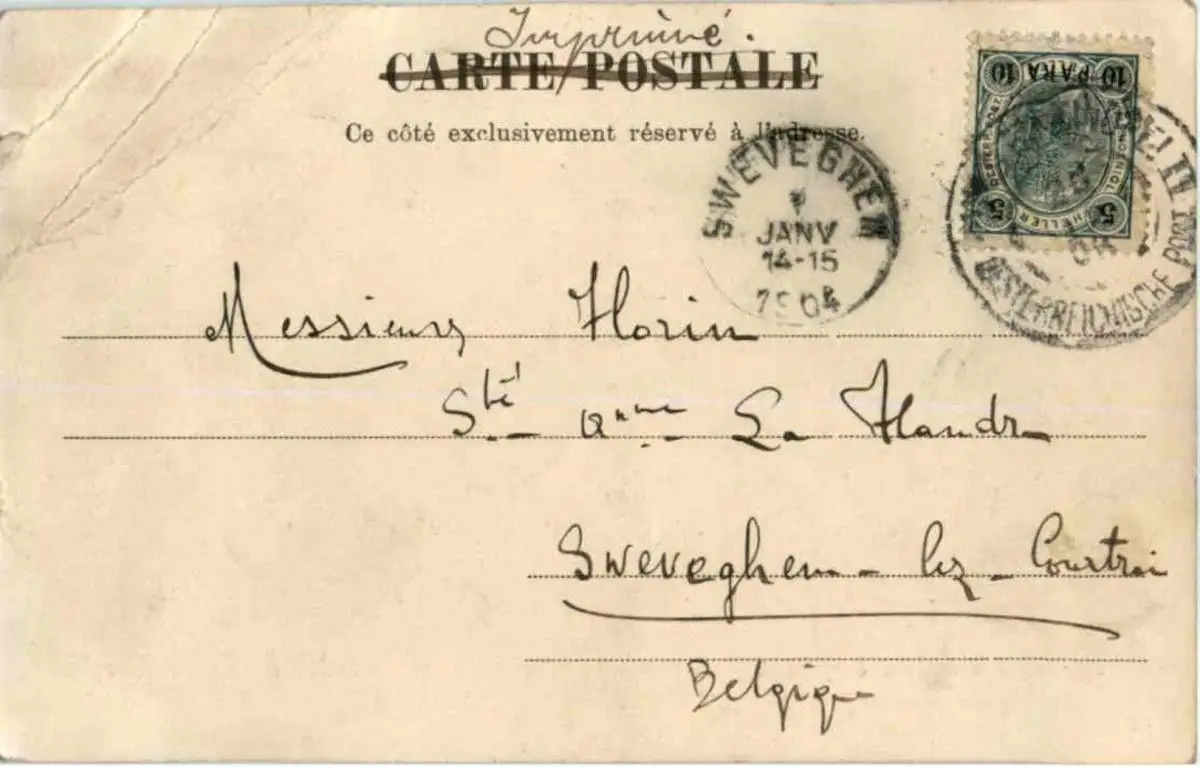 Imprimé.
CARTE POSTALE
Ce côté exclusivement réservé à l'adresse.
10 PARA 10
5 HELLER 5
SWEVEGHEM
JANV
14-15
1904
OESTERREICHISCHE POST
Messieurs Florin
Sté Anme La Flandre
Sweveghem - lez - Courtrai
Belgique